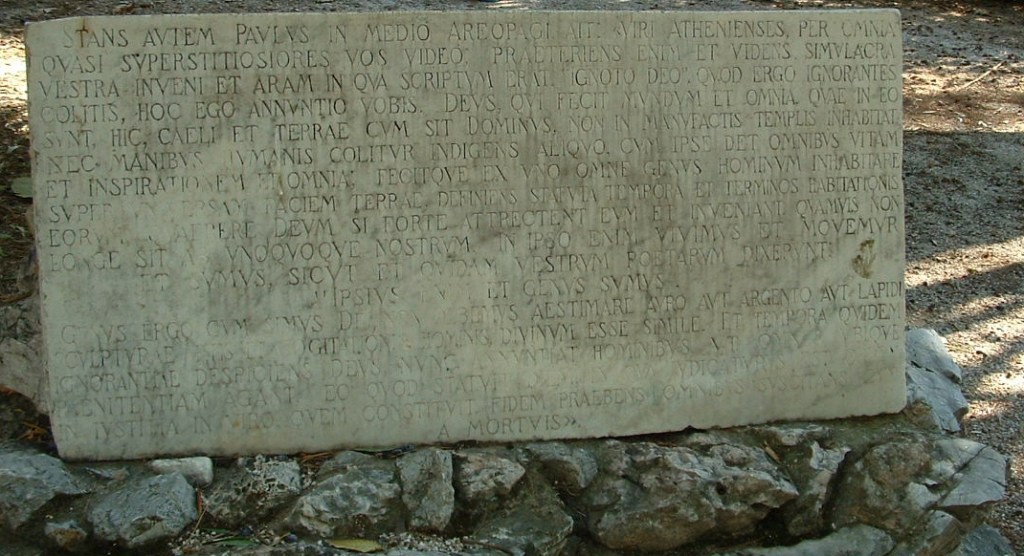 STANS AVTEM PAVLVS IN MEDIO AREOPAGI AIT: VIRI ATHENIENSES, PER OMNIA
QVASI SVPERSTITIOSIORES VOS VIDEO. PRAETERIENS ENIM ET VIDENS SIMVLACRA
VESTRA INVENI ET ARAM IN QVA SCRIPTVM ERAT: IGNOTO DEO. QVOD ERGO IGNORANTES
COLITIS, HOC EGO ANNVNTIO VOBIS. DEVS, QVI FECIT MVNDVM ET OMNIA QVAE IN EO
SVNT, HIC, CAELI ET TERRAE CVM SIT DOMINVS, NON IN MANVFACTIS TEMPLIS INHABITAT
NEC MANIBVS HVMANIS COLITVR INDIGENS ALIQVO, CVM IPSE DET OMNIBVS VITAM
ET INSPIRATIONEM ET OMNIA; FECITQVE EX VNO OMNE GENVS HOMINVM INHABITARE
SVPER FACIEM TERRAE DEFINIENS STATVTA TEMPORA ET TERMINOS HABITATIONIS
DEVM SI FORTE ATTRECTENT EVM ET INVENIANT QVAMVIS NON
LONGE SIT VNOQVOQVE NOSTRVM. IN IPSO ENIM VIVIMVS ET MOVEMVR
ET SVMVS, SICVT ET QVIDAM VESTRVM POETARVM DIXERVNT:
IPSIVS ET GENVS SVMVS
GENVS ERGO CVM SIMVS AESTIMARE AVRO AVT ARGENTO AVT LAPIDI
SCVLPTVRAE HOMINIS DIVINVM ESSE SIMILE. ET TEMPORA QVIDEM
IGNORANTIAE DESPICIENS DEVS NVNC HOMINIBVS
AGANT EO QVOD STATVIT
IN QVEM CONSTITVIT FIDEM PRAEBENS OMNIBVS
A MORTVIS».